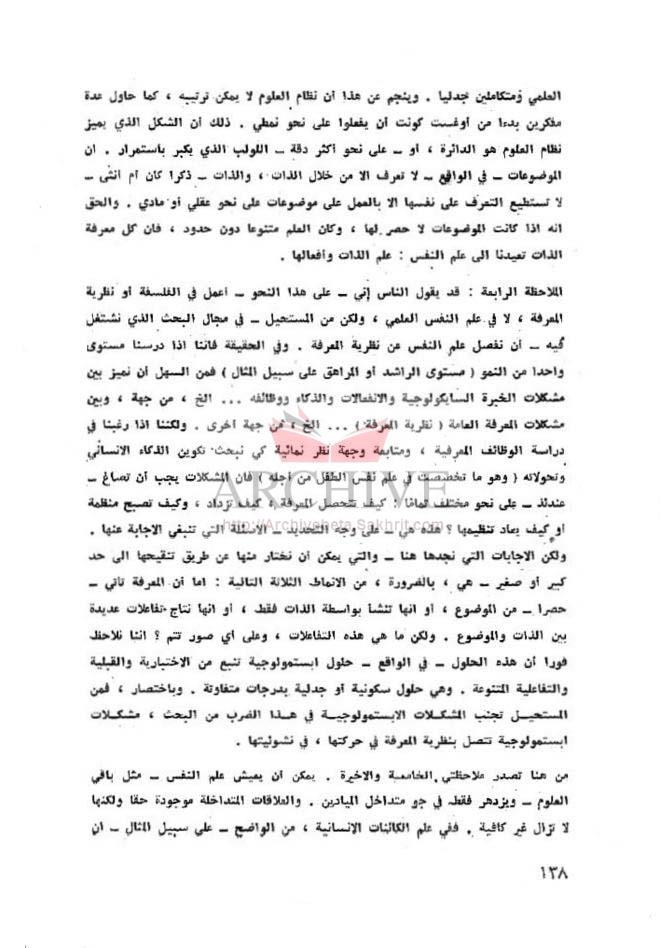 العلمي ومتكاملين جدليا . وينجم عن هذا أن نظام العلوم لا يمكن ترتيبه ، كما حاول عدة
مفكرين بدءا من أوغست كونت أن يفعلوا على نحو نمطي . ذلك أن الشكل الذي يميز
نظام العلوم هو الدائرة ، أو ــ على نحو أكثر دقة ــ اللولب الذي يكبر باستمرار . ان
الموضوعات ــ في الواقع ــ لا تعرف الا من خلال الذات ، والذات ــ ذكرا كان أم انثى ــ
لا تستطيع التعرف على نفسها الا بالعمل على موضوعات على نحو عقلي أو مادي . والحق
انه اذا كانت الموضوعات لا حصر لها ، وكان العلم متنوعا دون حدود ، فان كل معرفة
الذات تعيدنا الى علم النفس : علم الذات وأفعالها .
الملاحظة الرابعة : قد يقول الناس إني ــ على هذا النحو ــ أعمل في الفلسفة أو نظرية
المعرفة ، لا في علم النفس العلمي ، ولكن من المستحيل ــ في مجال البحث الذي نشتغل
فيه ــ أن نفصل علم النفس عن نظرية المعرفة . وفي الحقيقة فاننا اذا درسنا مستوى
واحدا من النمو ( مستوى الراشد أو المراهق على سبيل المثال ) فمن السهل أن نميز بين
مشكلات الخبرة السايكولوجية والانفعالات والذكاء ووظائفه ... الخ ، من جهة ، وبين
مشكلات المعرفة العامة ( نظرية المعرفة ) ... الخ ، من جهة أخرى . ولكننا اذا رغبنا في
دراسة الوظائف المعرفية ، ومتابعة وجهة نظر نمائية كي نبحث تكوين الذكاء الانساني
وتحولاته ( وهو ما تخصصت في علم نفس الطفل من أجله ) فان المشكلات يجب أن تصاغ ــ
عندئذ ــ على نحو مختلف تماما : كيف تتحصل المعرفة ، كيف تزداد ، وكيف تصبح منظمة
أو كيف يعاد تنظيمها ؟ هذه هي ــ على وجه التحديد ــ الاسئلة التي تنبغي الاجابة عنها .
ولكن الاجابات التي نجدها هنا ــ والتي يمكن أن نختار منها عن طريق تنقيحها الى حد
كبير أو صغير ــ هي ، بالضرورة ، من الانماط الثلاثة التالية : اما أن المعرفة تأتي ــ
حصرا ــ من الموضوع ، أو انها تنشأ بواسطة الذات فقط ، أو انها نتاج تفاعلات عديدة
بين الذات والموضوع . ولكن ما هي هذه التفاعلات ، وعلى أي صور تتم ؟ اننا نلاحظ
فورا أن هذه الحلول ــ في الواقع ــ حلول ابستمولوجية تنبع من الاختبارية والقبلية
والتفاعلية المتنوعة . وهي حلول سكونية أو جدلية بدرجات متفاوتة . وباختصار ، فمن
المستحيل تجنب المشكلات الابستمولوجية في هذا الضرب من البحث ، مشكلات
ابستمولوجية تتصل بنظرية المعرفة في حركتها ، في نشوئيتها .
من هنا تصدر ملاحظتي الخامسة والاخيرة . يمكن أن يعيش علم النفس ــ مثل باقي
العلوم ــ ويزدهر فقط في جو متداخل الميادين . والعلاقات المتداخلة موجودة حقا ولكنها
لا تزال غير كافية . ففي علم الكائنات الإنسانية ، من الواضح ــ على سبيل المثال ــ ان
١٣٨
ARCHIVE
http://Archivebeta.Sakhrit.com